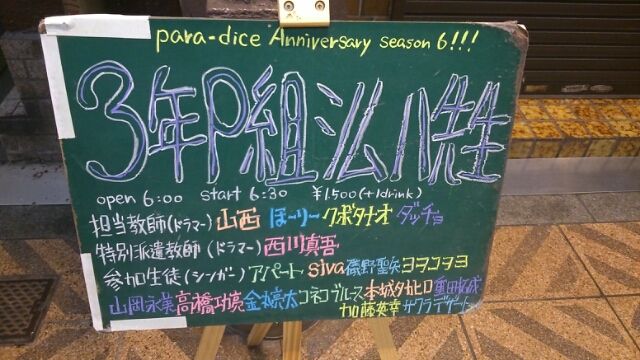 para-dice Anniversary season 6!!!
3年P組 シム八先生
open 6:00 start 6:30 ¥1,500(+1drink)
担当教師(ドラマー) 山西 ほーリー クボタナオ ダッチョ
特別派遣教師(ドラマー) 西川真吾
参加生徒(シンガー) アパート siva 磯野聖矢 ヨヲコヲヨ
山岡永美 高橋功亮 金丸涼太 コネコブルース 本城タカヒロ 重田拓成
加藤英幸 サクラデザート